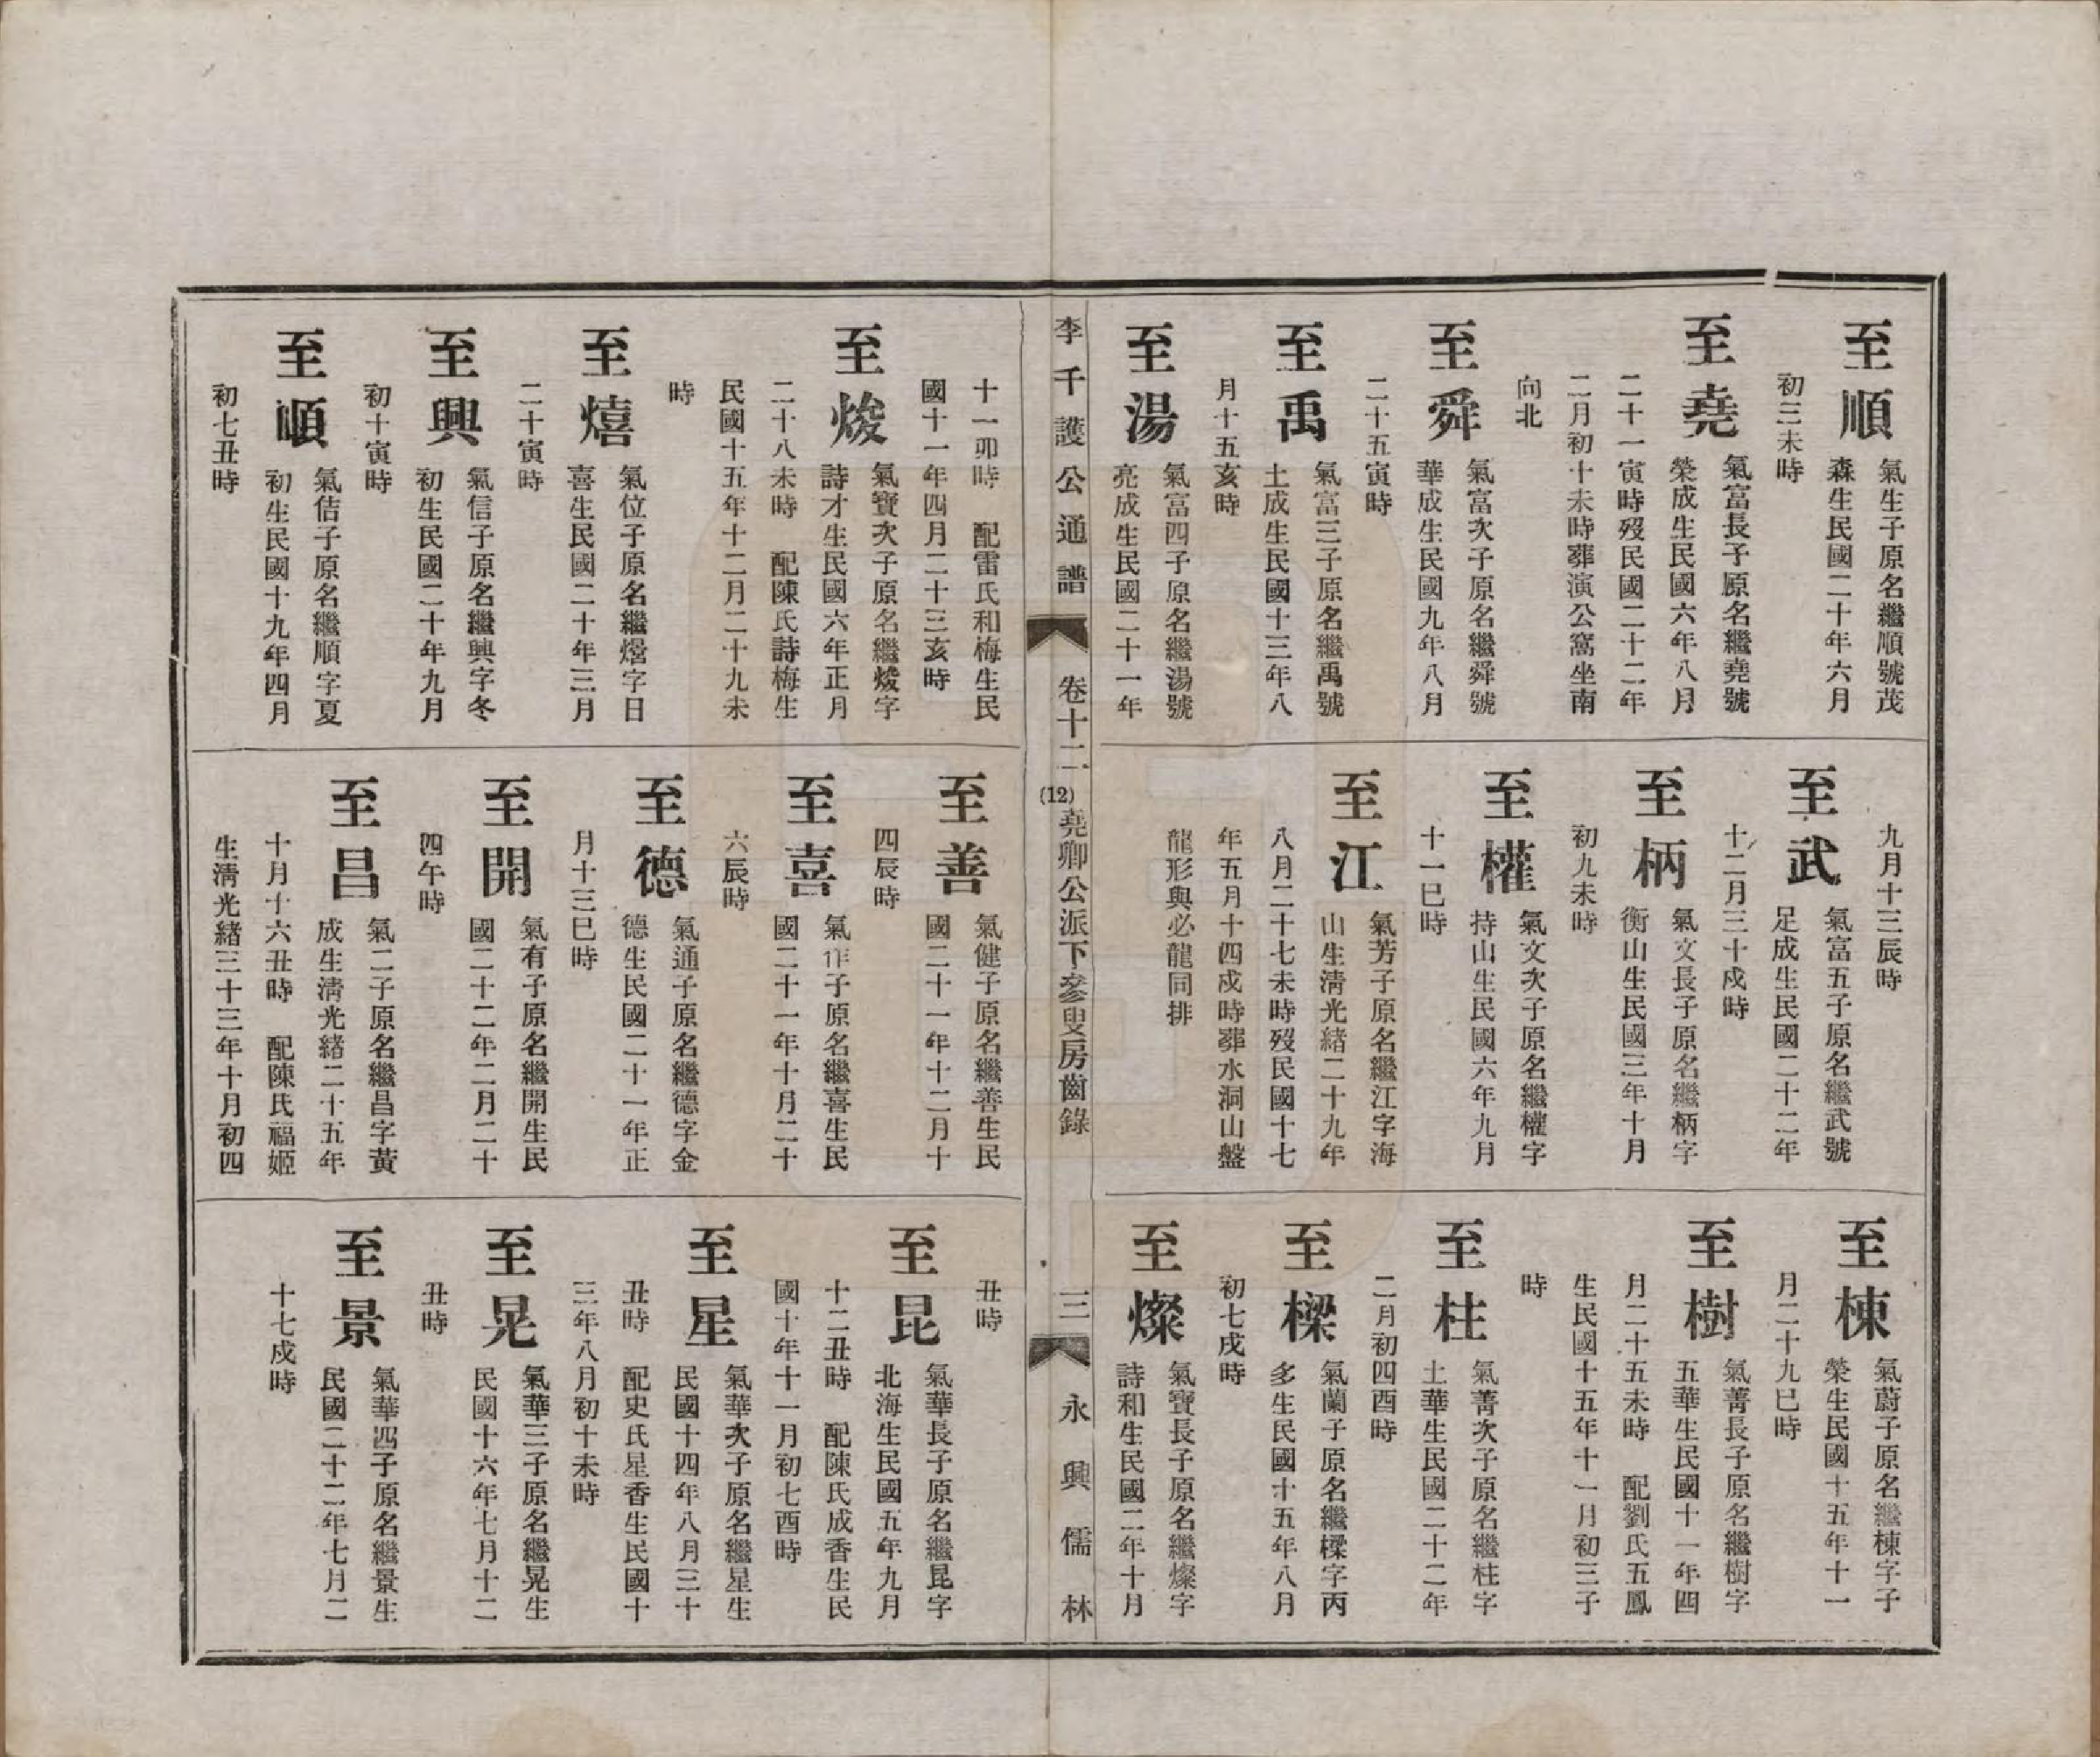 至順
氣生子原名繼順號茂
森生民國二十年六月
初三未時
至堯
氣富長子原名繼堯號
榮成生民國六年八月
二十一寅時歿民國二十二年
二月初十未時葬演公窩坐南
向北
至舜
氣富次子原名繼舜號
華成生民國九年八月
二十五寅時
至禹
氣富三子原名繼禹號
土成生民國十三年八
月十五亥時
至湯
氣富四子原名繼湯號
亮成生民國二十一年
九月十三辰時
至武
氣富五子原名繼武號
足成生民國二十二年
十二月三十戍時
至柄
氣文長子原名繼柄字
衡山生民國三年十月
初九未時
至權
氣文次子原名繼權字
持山生民國六年九月
十一巳時
至江
氣芳子原名繼江字海
山生清光緒二十九年
八月二十七未時歿民國十七
年五月十四戍時葬水洞山盤
龍形與必龍同排
至棟
氣蔚子原名繼棟字子
榮生民國十五年十一
月二十九巳時
至樹
氣菁長子原名繼樹字
五華生民國十一年四
月二十五未時　配劉氏五鳳
生民國十五年十一月初三子
時
至柱
氣菁次子原名繼柱字
土華生民國二十二年
二月初四酉時
至樑
氣蘭子原名繼樑字丙
多生民國十五年八月
初七戍時
至燦
氣寶長子原名繼燦字
詩和生民國二年十月
李千護公通譜
卷十二
(12)
堯卿公派下參叟房齒錄
三
永興儒林
十一卯時　配雷氏和梅生民
國十一年四月二十三亥時
至焌
氣寶次子原名繼焌字
詩才生民國六年正月
二十八未時　配陳氏詩梅生
民國十五年十二月二十九未
時
至熺
氣位子原名繼熺字日
喜生民國二十年三月
二十寅時
至興
氣信子原名繼興字冬
初生民國二十年九月
初十寅時
至順
氣佶子原名繼順字夏
初生民國十九年四月
初七丑時
至善
氣健子原名繼善生民
國二十一年十二月十
四辰時
至喜
氣作子原名繼喜生民
國二十一年十月二十
六辰時
至德
氣通子原名繼德字金
德生民國二十一年正
月十三巳時
至開
氣有子原名繼開生民
國二十二年二月二十
四午時
至昌
氣二子原名繼昌字黃
成生清光緒二十五年
十月十六丑時　配陳氏福姬
生清光緒三十三年十月初四
丑時
至昆
氣華長子原名繼昆字
北海生民國五年九月
十二丑時　配陳氏成香生民
國十年十一月初七酉時
至星
氣華次子原名繼星生
民國十四年八月三十
丑時　配史氏星香生民國十
三年八月初十未時
至晃
氣華三子原名繼晃生
民國十六年七月十二
丑時
至景
氣華四子原名繼景生
民國二十二年七月二
十七戍時